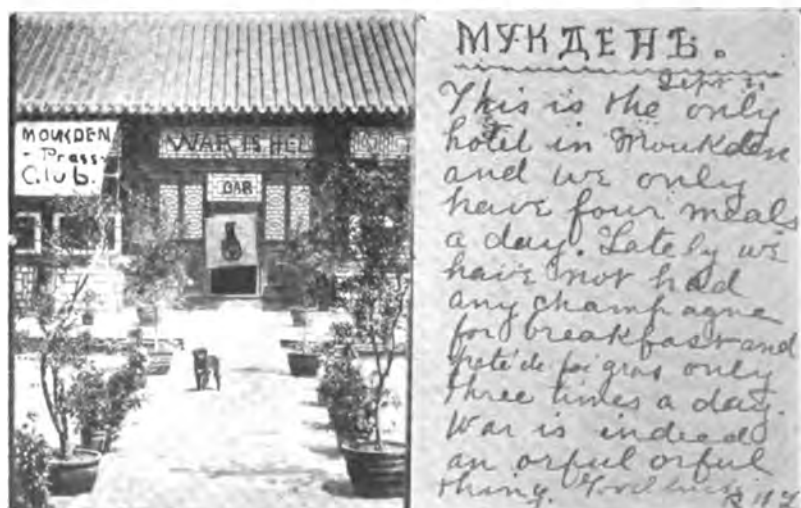 MOUKDEN
- Press -
Club.
WAR IS HEL
BAR
МУКДЕНЬ.
Sept
This is the only
hotel in Moukden
and we only
have four meals
a day. Lately we
have not had
any champagne
for breakfast and
peté de foi gras only
three times a day.
War is indeed
an orful orful
thing.